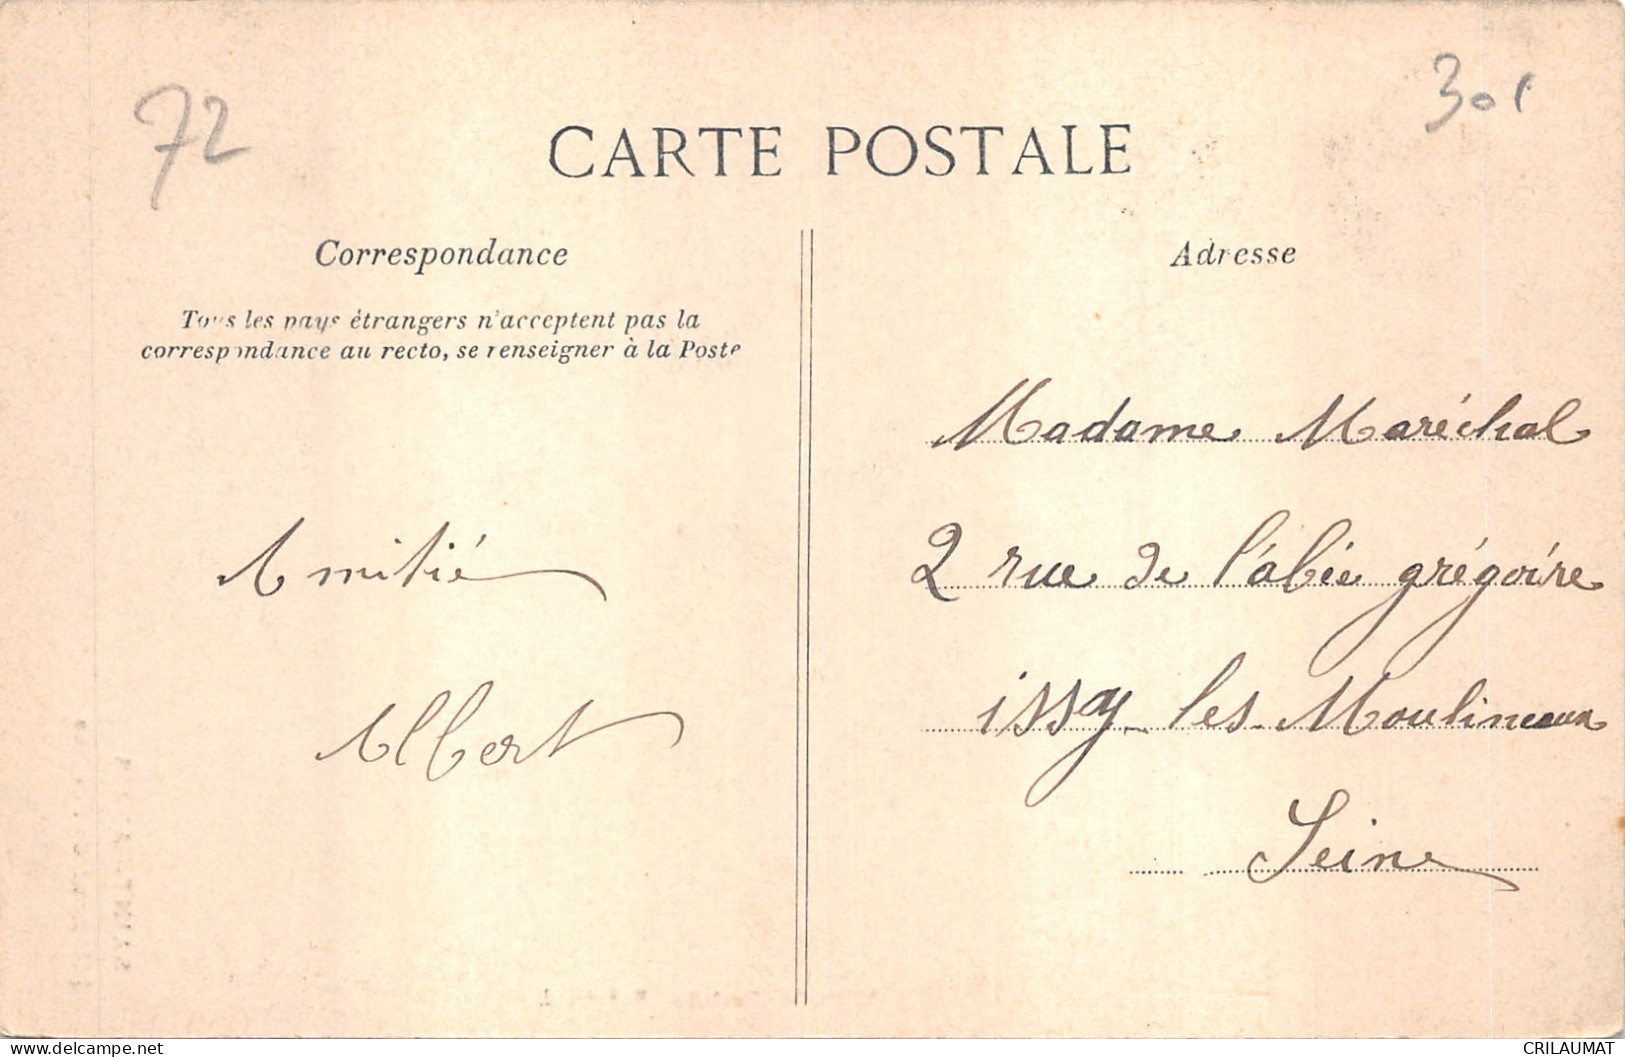 72
301
CARTE POSTALE
Correspondance
Tous les pays étrangers n'acceptent pas la
correspondance au recto, se renseigner à la Poste
Amitié
Albert
Adresse
Madame Maréchal
2 rue de l'ábée grégoire
issy-les-Moulineaux
Seine
delcampe.net
CRILAUMAT